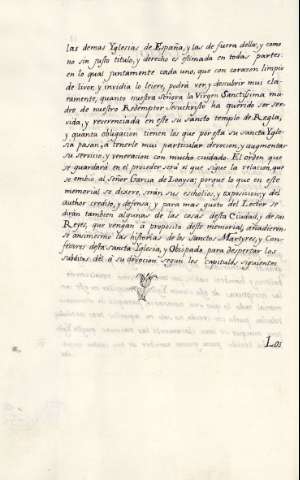 las demas Yglesias de España, y las de fuera della, y como
no sin justo titulo, y derecho es estimada en todas partes:
en lo qual juntamente cada uno, que con corazon limpio
de livor, y invidia lo leiere, podrá ver, y descubrir muy cla-
ramente, quanto nuestra Señora la Virgen Santissima ma-
dre de nuestro Redemptor Jesuchristo ha querido ser ser-
vida, y reverenciada en este su sancto templo de Regla,
y quanta obligacion tienen los que por esta su sancta Ygle-
sia pasan, á tenerle muy particular devocion, y augmentar
su servicio, y veneracion con mucho cuidado. El orden que
se guardará en el proceder será el que sigue la relacion, que
se embió al Señor Garcia de Loaysa: porque lo que en este
memorial se dixere, serán sus escholios, y exposicion, y del
author credito, y defensa, y para mas gusto del Lector se
dirán tambien algunas de las cosas desta Ciudad, y de sus
Reyes, que vengan á proposito deste memorial, añadiense
se assimesmo las historias de los Sanctos Martyres, y Con-
fesores desta Sancta Yglesia, y Obispado, para despertar los
subditos dél á su devocion segun los capitulos siguientes
Los